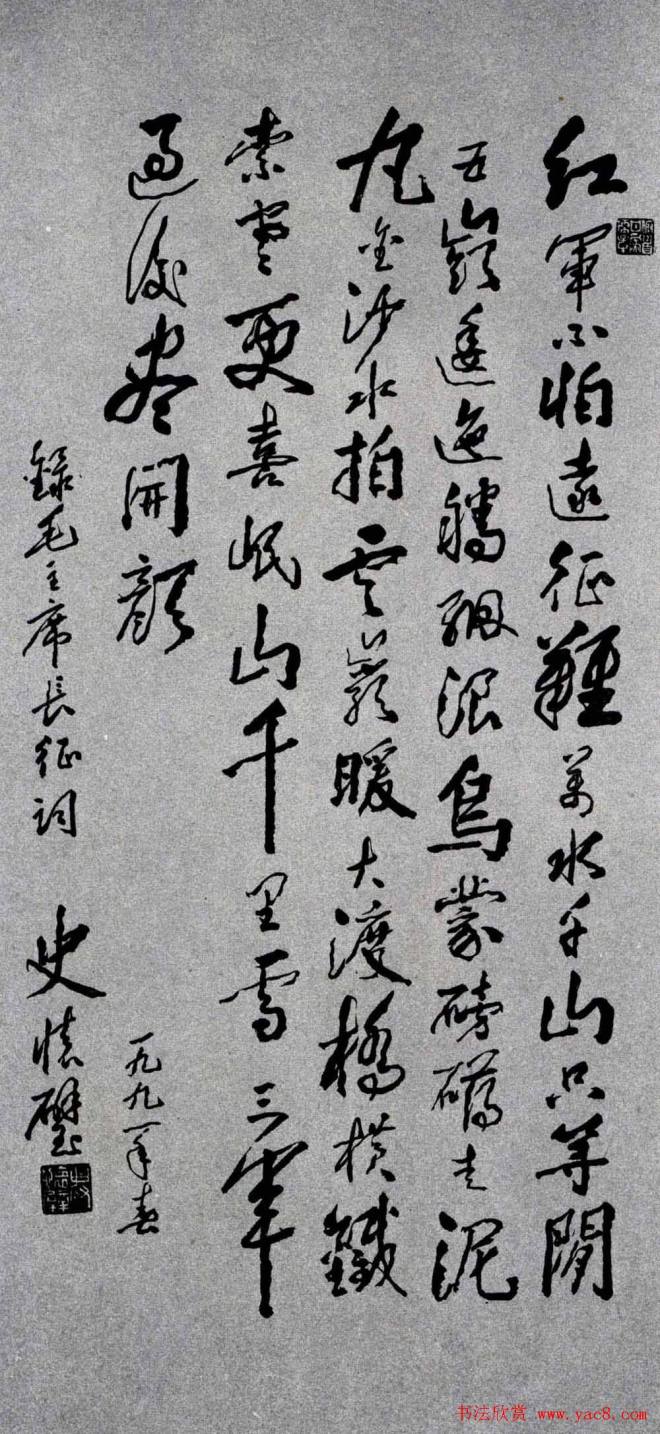 红軍不怕遠征難萬水千山只等閒
五嶺逶迤騰細浪烏蒙磅礴走泥
丸金沙水拍云巖暖大渡橋橫鐵
索寒更喜岷山千里雪三軍
過後盡開顏
一九九一年春
錄毛主席長征詞 史懷璧
书法欣赏 www.yac8.com